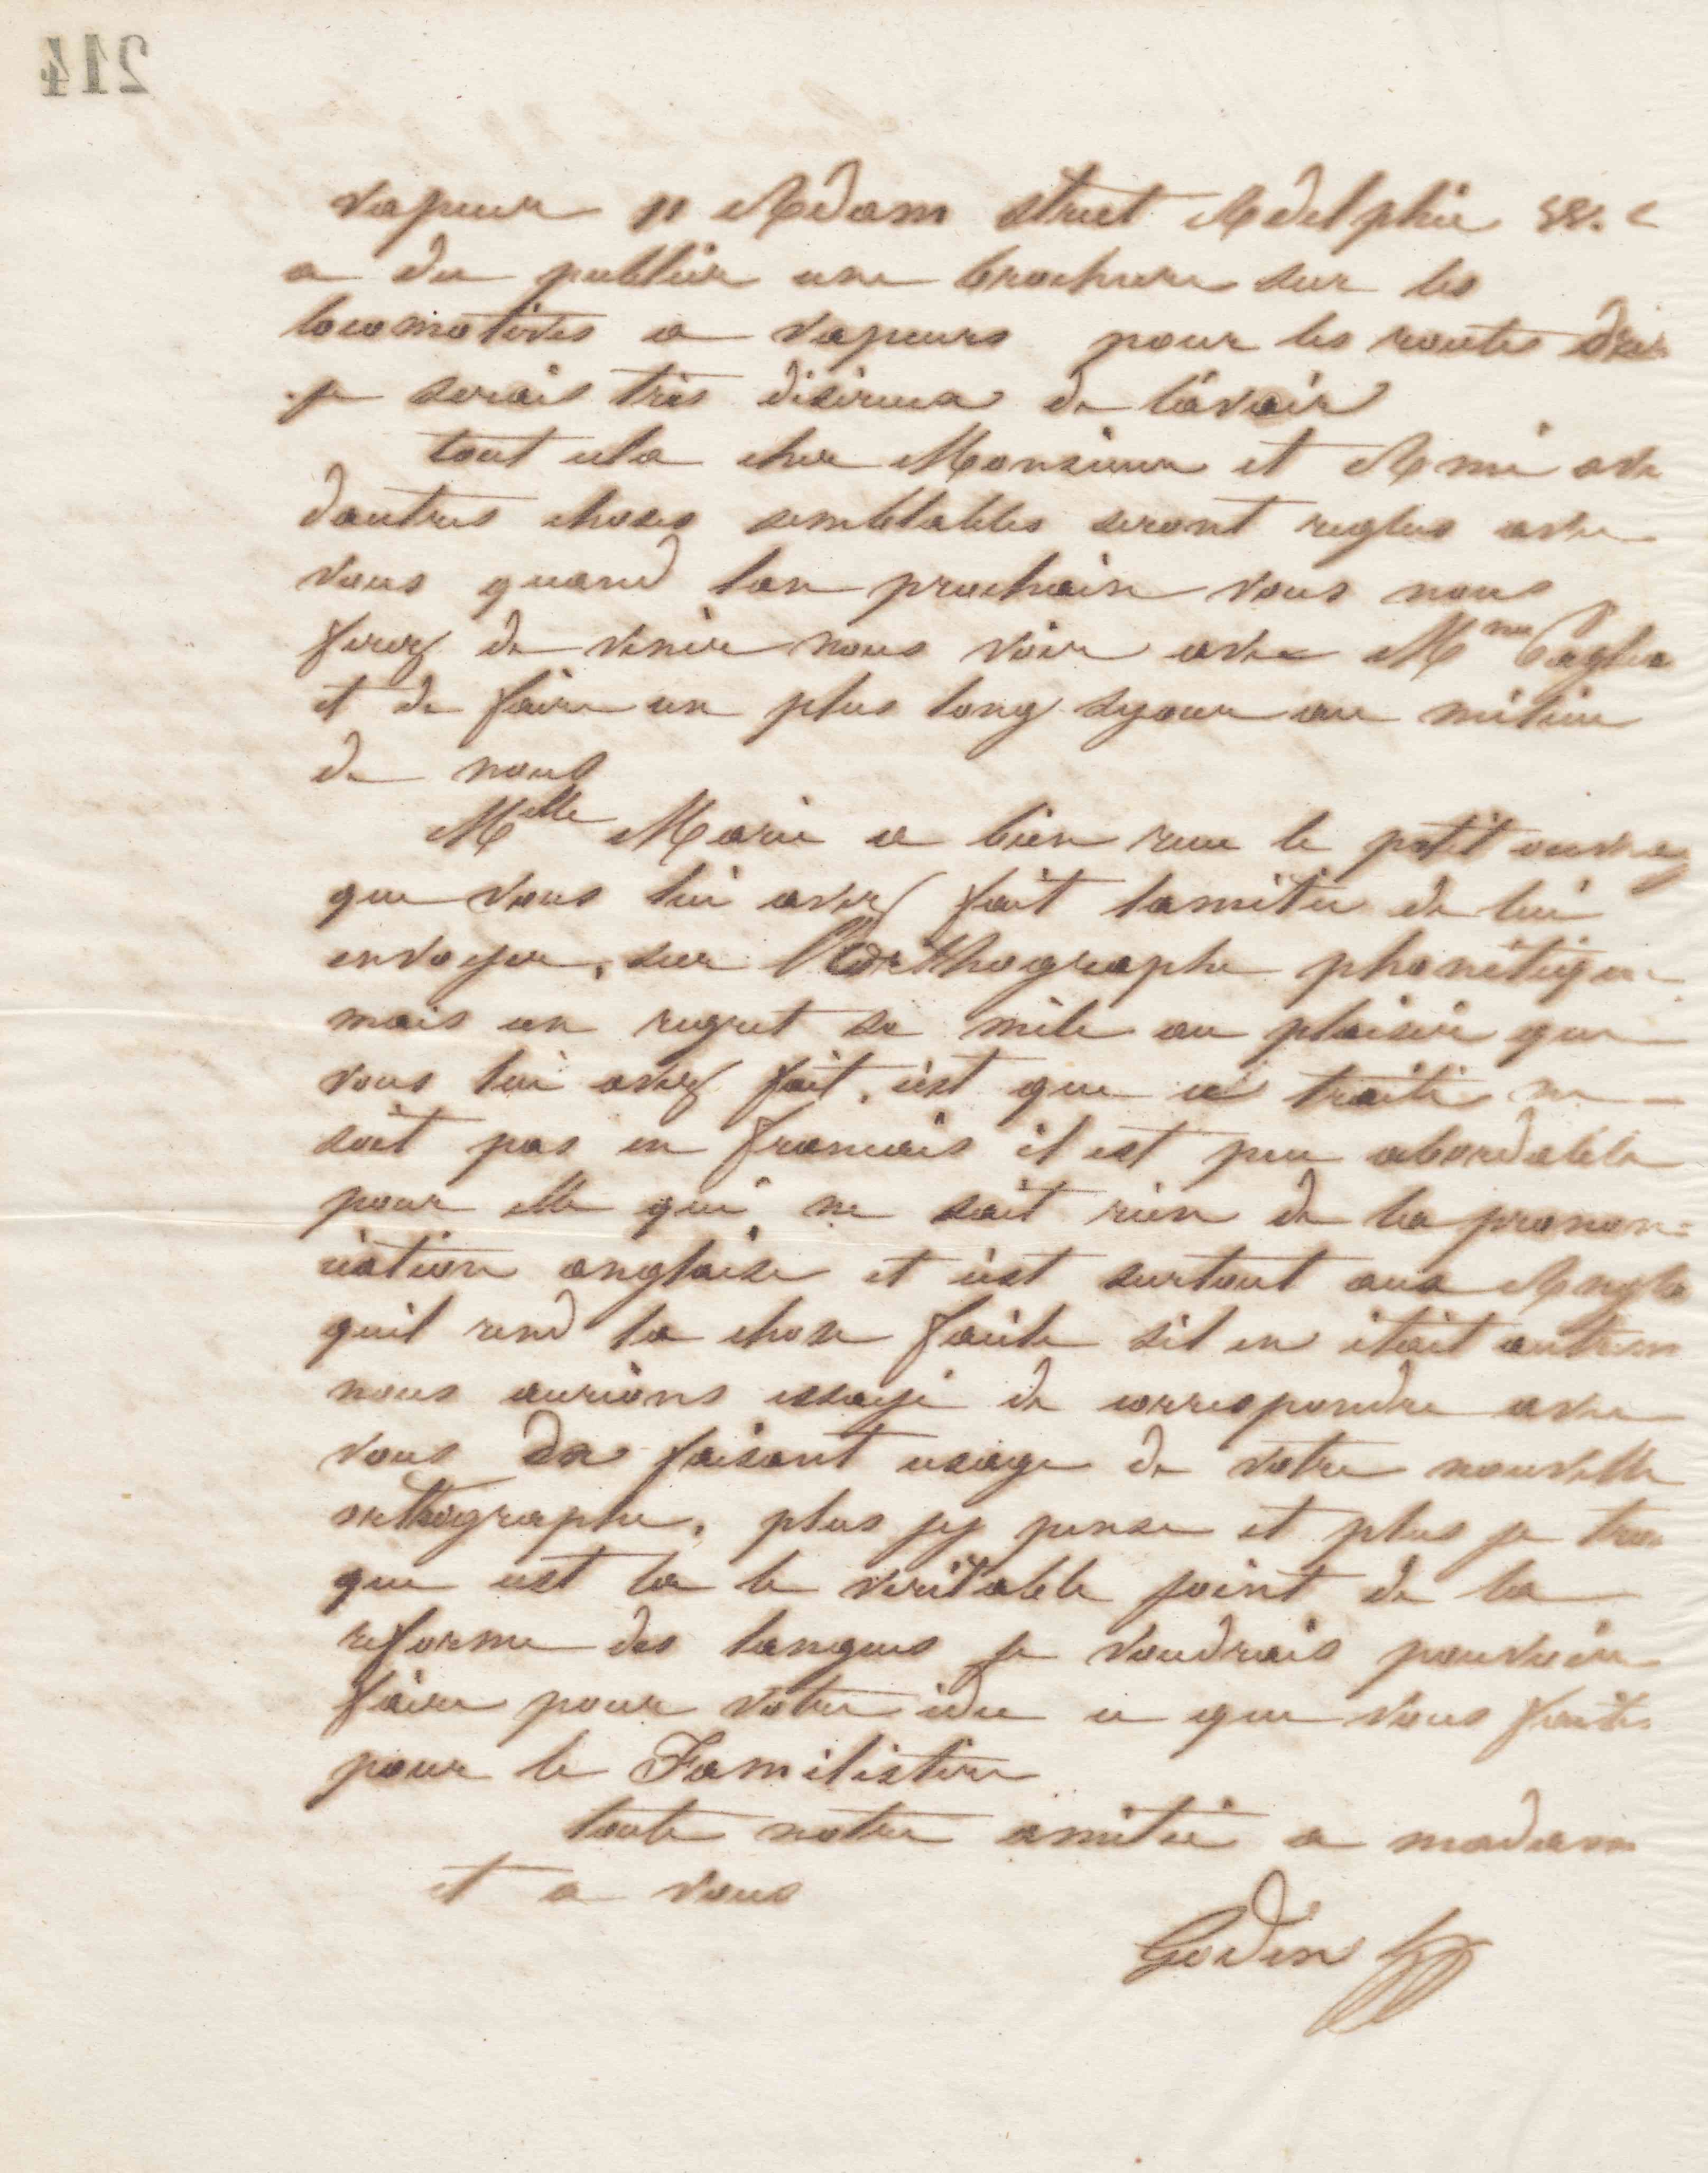 214
vapeur 11 Adam street Adelphie
a du publier une brochure sur les
locomotives a vapeurs pour les routes
je serais très désireux de l'avoir
tout cela cher Monsieur et Ami avec
dautres choses semblables seront regles avec
vous quand lan prochain vous nous
ferez de venir nous voir avec Mme Pagliar
et de faire un plus long sejour au milieu
de nous
Melle Marie a bien recu le petit ouvrag
que vous lui avez fait lamitié de lui
envoyer, sur l'Orthographe phonétique
mais un regret se mêle au plaisir que
vous lui avez fait, cest que ce traité ne
soit pas en francais il est peu abordable
pour elle qui ne sait rien de la pronon=
ciation anglaise et cest surtout aux Angla
quil rend la chose facile sil en était autrem
nous aurions essayé de correspondre avec
vous en faisant usage de votre nouvelle
orthographe, plus jy pense et plus je trou
que cest la le veritable point de la
reforme des langues je voudrais pouvoir
faire pour votre idée ce que vous faites
pour le Familistère
toute notre amitié a madam
et a vous
Godin